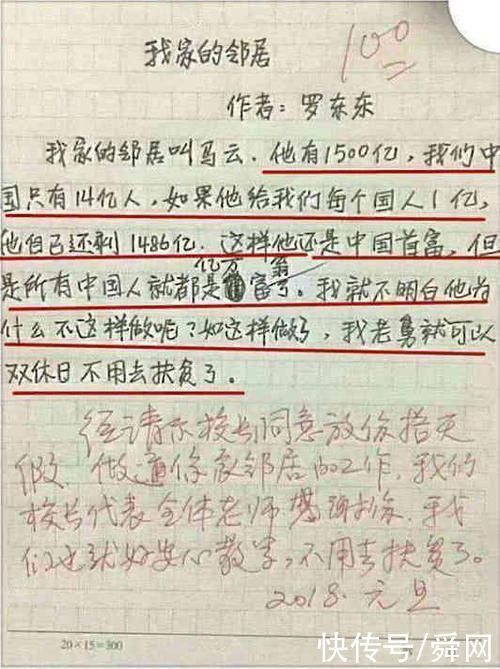 100
我家的邻居
作者：罗东东
我家的邻居叫马云．他有1500亿，我们中
国只有14亿人，如果他给我们每个国人1亿，
他自己还剩1486亿．这样他还是中国首富，但
亿万 翁
是所有中国人就都是富了。我就不明白他为
什么不这样做呢？如这样做了，我老舅就可以
双休日不用去扶贫了。
经请示校长同意放你搭天
假 做通你家邻居的工作．我们
校长代表全体老师感谢你．我
们也就好安心教学，不用去扶贫了。
2018.元旦
20×15=300
快传号/舜网